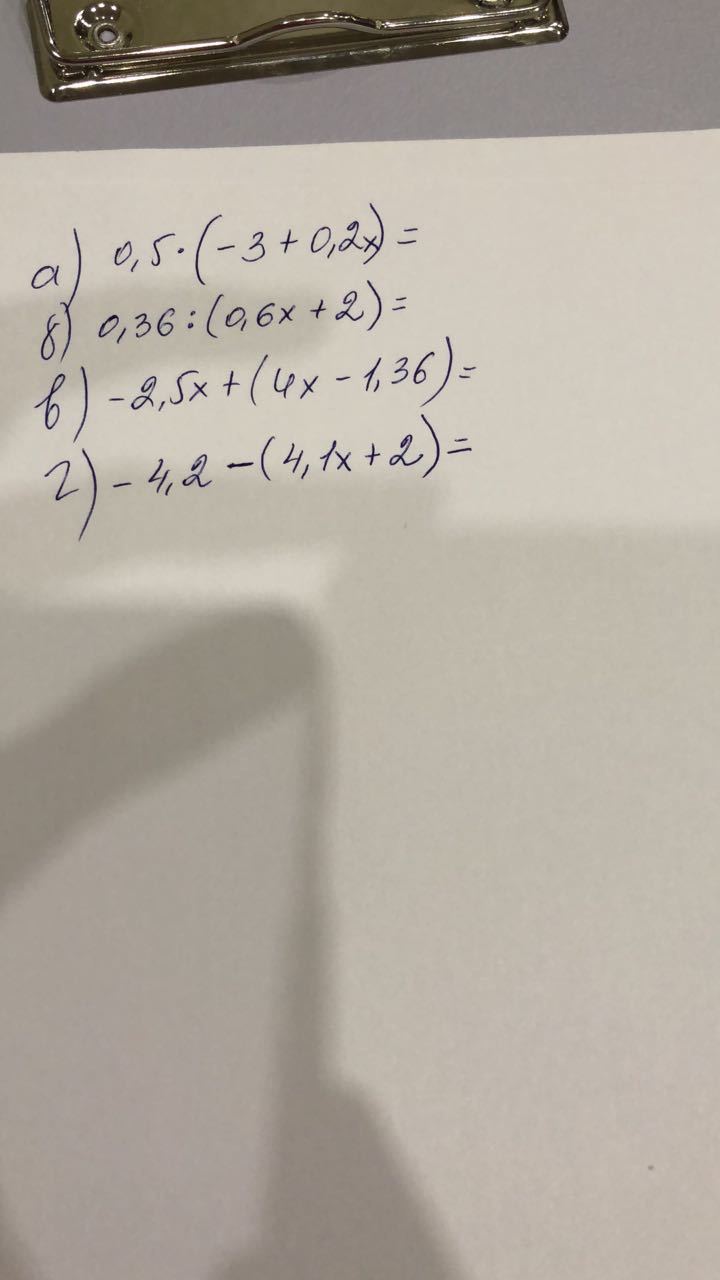 а) 0,5·(-3+0,2x)=
б) 0,36:(0,6x+2)=
в) -2,5x+(4x-1,36)=
г) -4,2-(4,1x+2)=